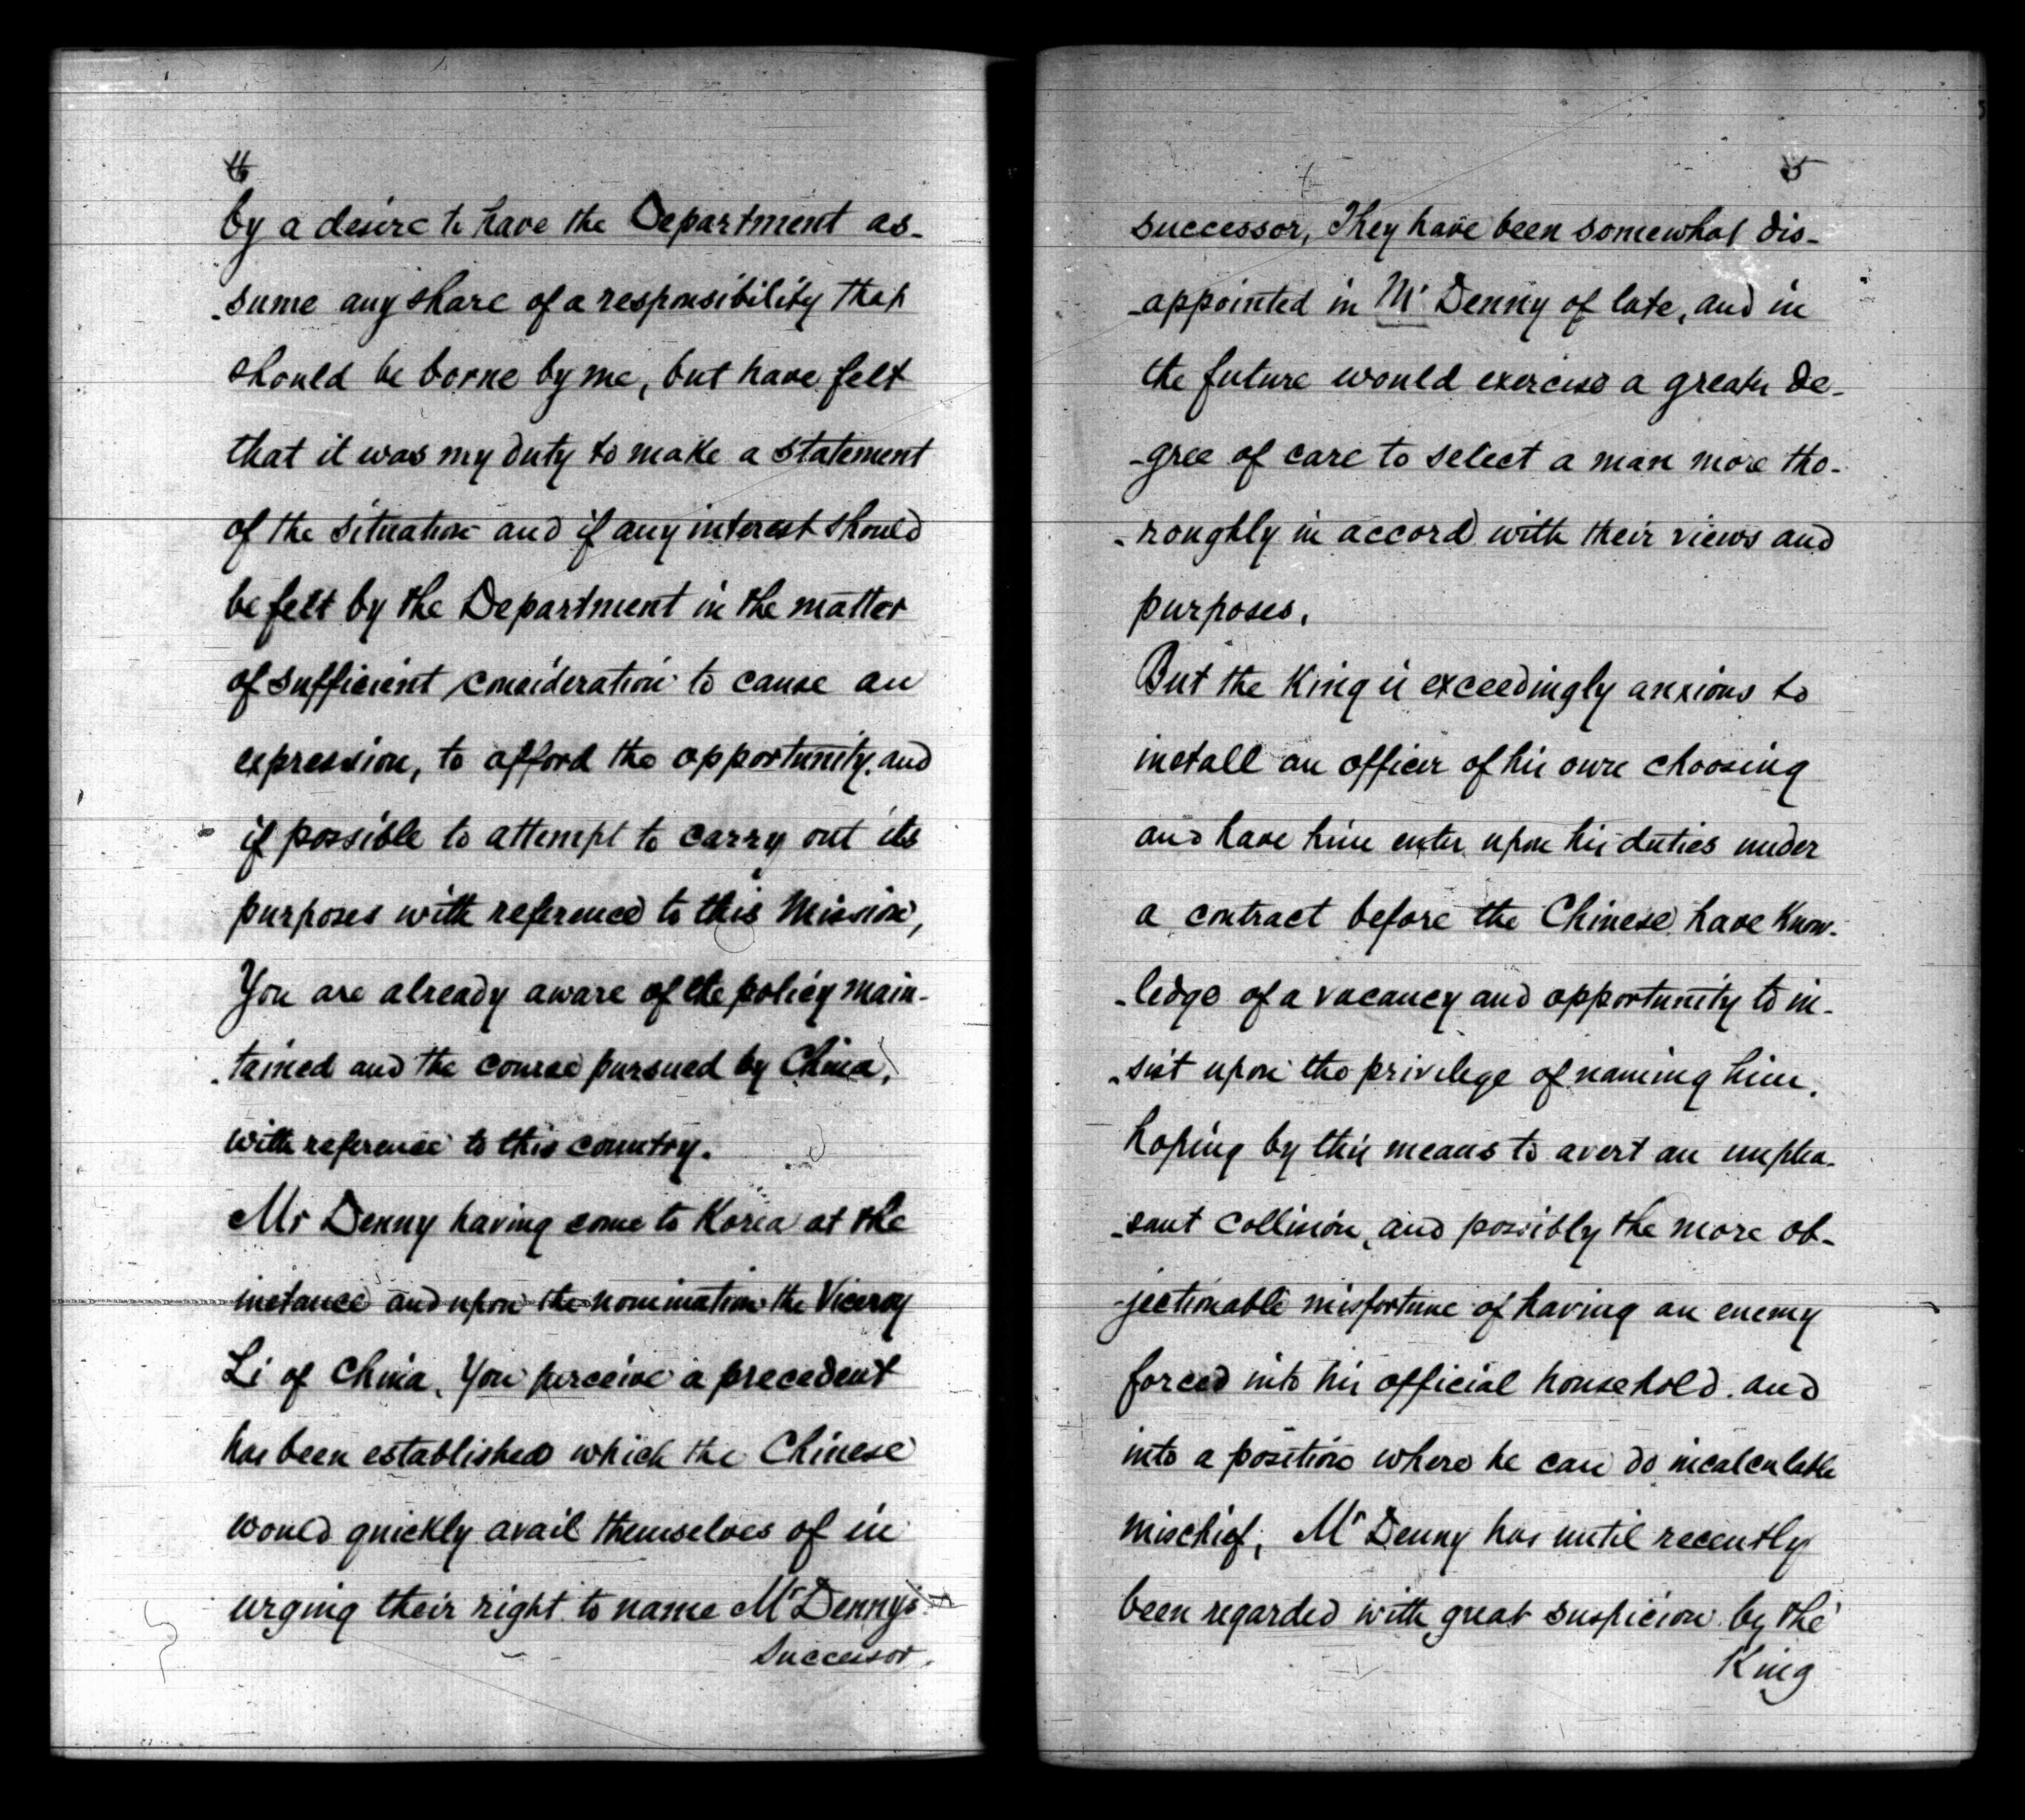 4
by a desire to have the Department as-
-sume any share of a responsibility that
should be borne by me, but have felt
that it was my duty to make a statement
of the situation and if any interest should
be felt by the Department in the matter
of sufficient consideration to cause an
expression, to afford the opportunity, and
if possible to attempt to carry out its
purposes with reference to this Mission,
You are already aware of the policy main-
-tained and the course pursued by China,
with reference to this country.
Mr Denny having come to Korea at the
instance and upon the nomination the Viceroy
Li of China, You perceive a precedent
has been established which the Chinese
would quickly avail themselves of in
urging their right to name Mr Denny's
successor.
5
successor, They have been somewhat dis-
-appointed in Mr Denny of late, and in
the future would exercise a greater de-
-gree of care to select a man more tho-
-roughly in accord with their views and
purposes.
But the King is exceedingly anxious to
install an officer of his own choosing
and have him enter upon his duties under
a contract before the Chinese have know-
-ledge of a vacancy and opportunity to in-
-sist upon the privilege of naming him,
hoping by this means to avert an unplea-
-sant collision, and possibly the more ob-
-jectionable misfortune of having an enemy
forced into his official household and
into a position where he can do incalculable
mischief, Mr Denny has until recently
been regarded with great suspicion by the
King